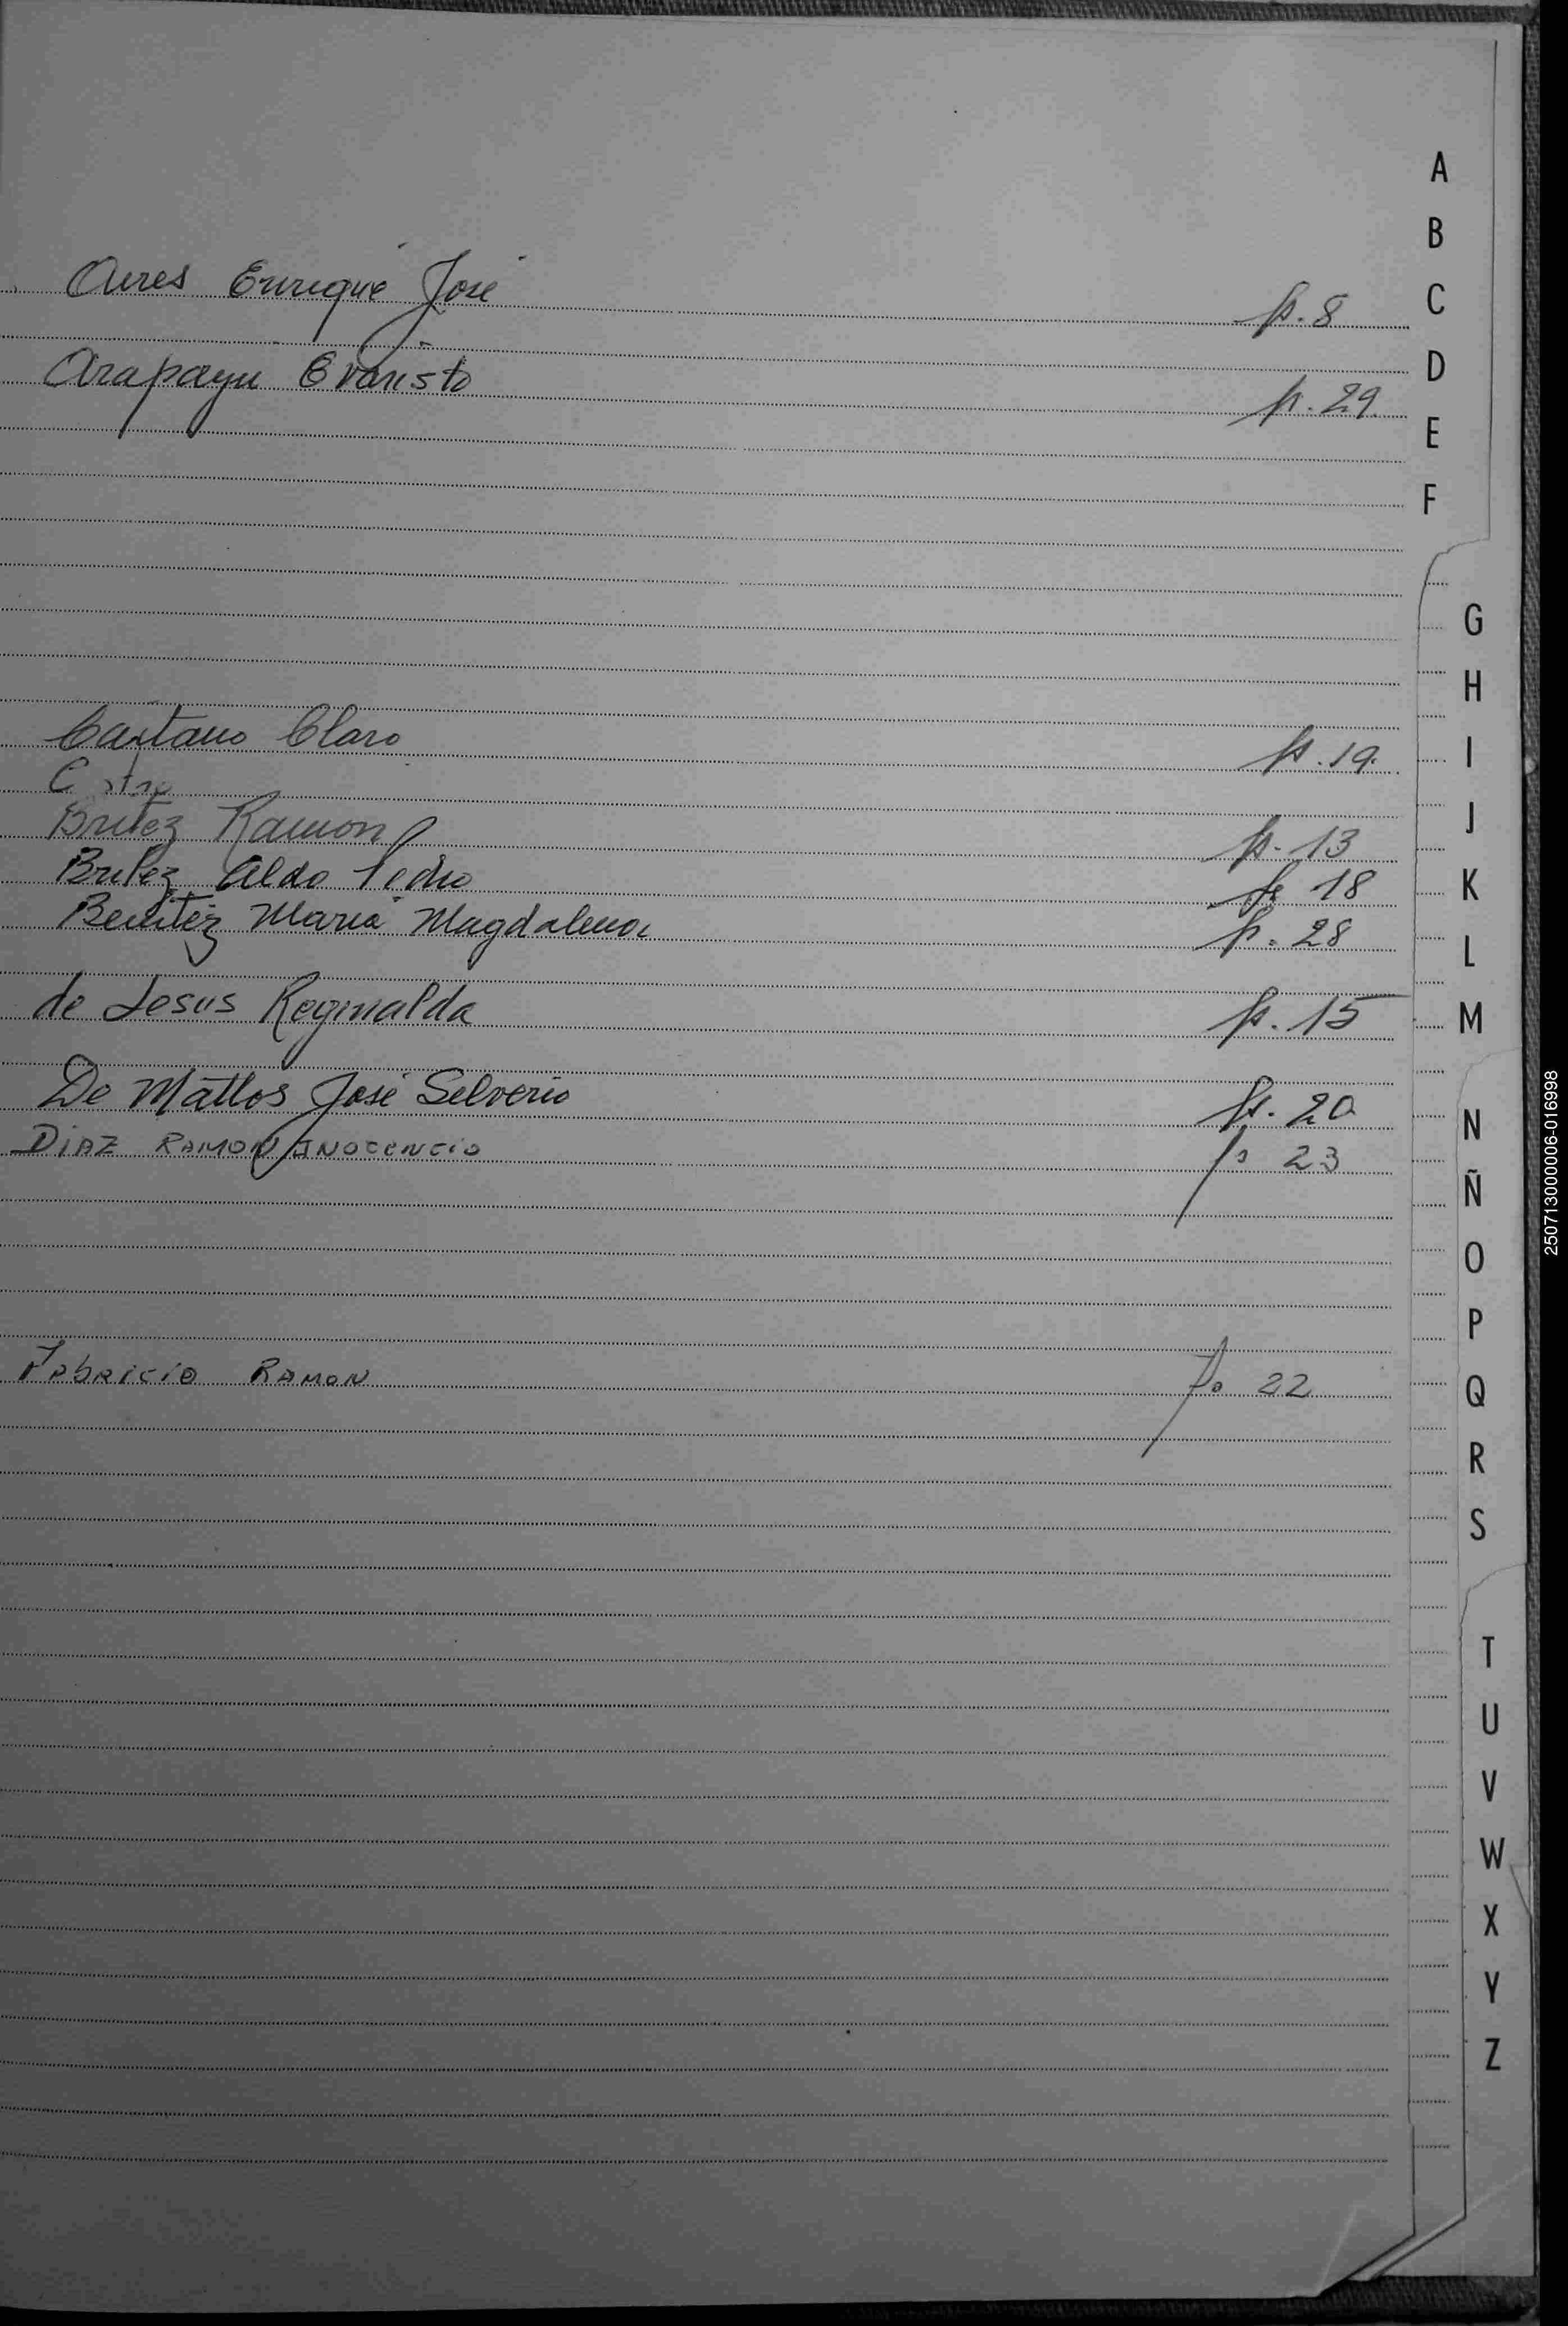 Aires Enrique José p. 8
Arapayu Evaristo p. 29
Caetano Claro p. 19
Britez Ramon p. 13
Britez Aldo Pedro p. 18
Benitez Maria Magdalena p. 28
de Jesus Reginalda p. 15
De Mattos José Selverio p. 20
DIAZ RAMON INOCENCIO p. 23
FABRICIO RAMON Fo 22
A
B
C
D
E
F
G
H
I
J
K
L
M
N
Ñ
O
P
Q
R
S
T
U
V
W
X
Y
Z
250713000006-016998